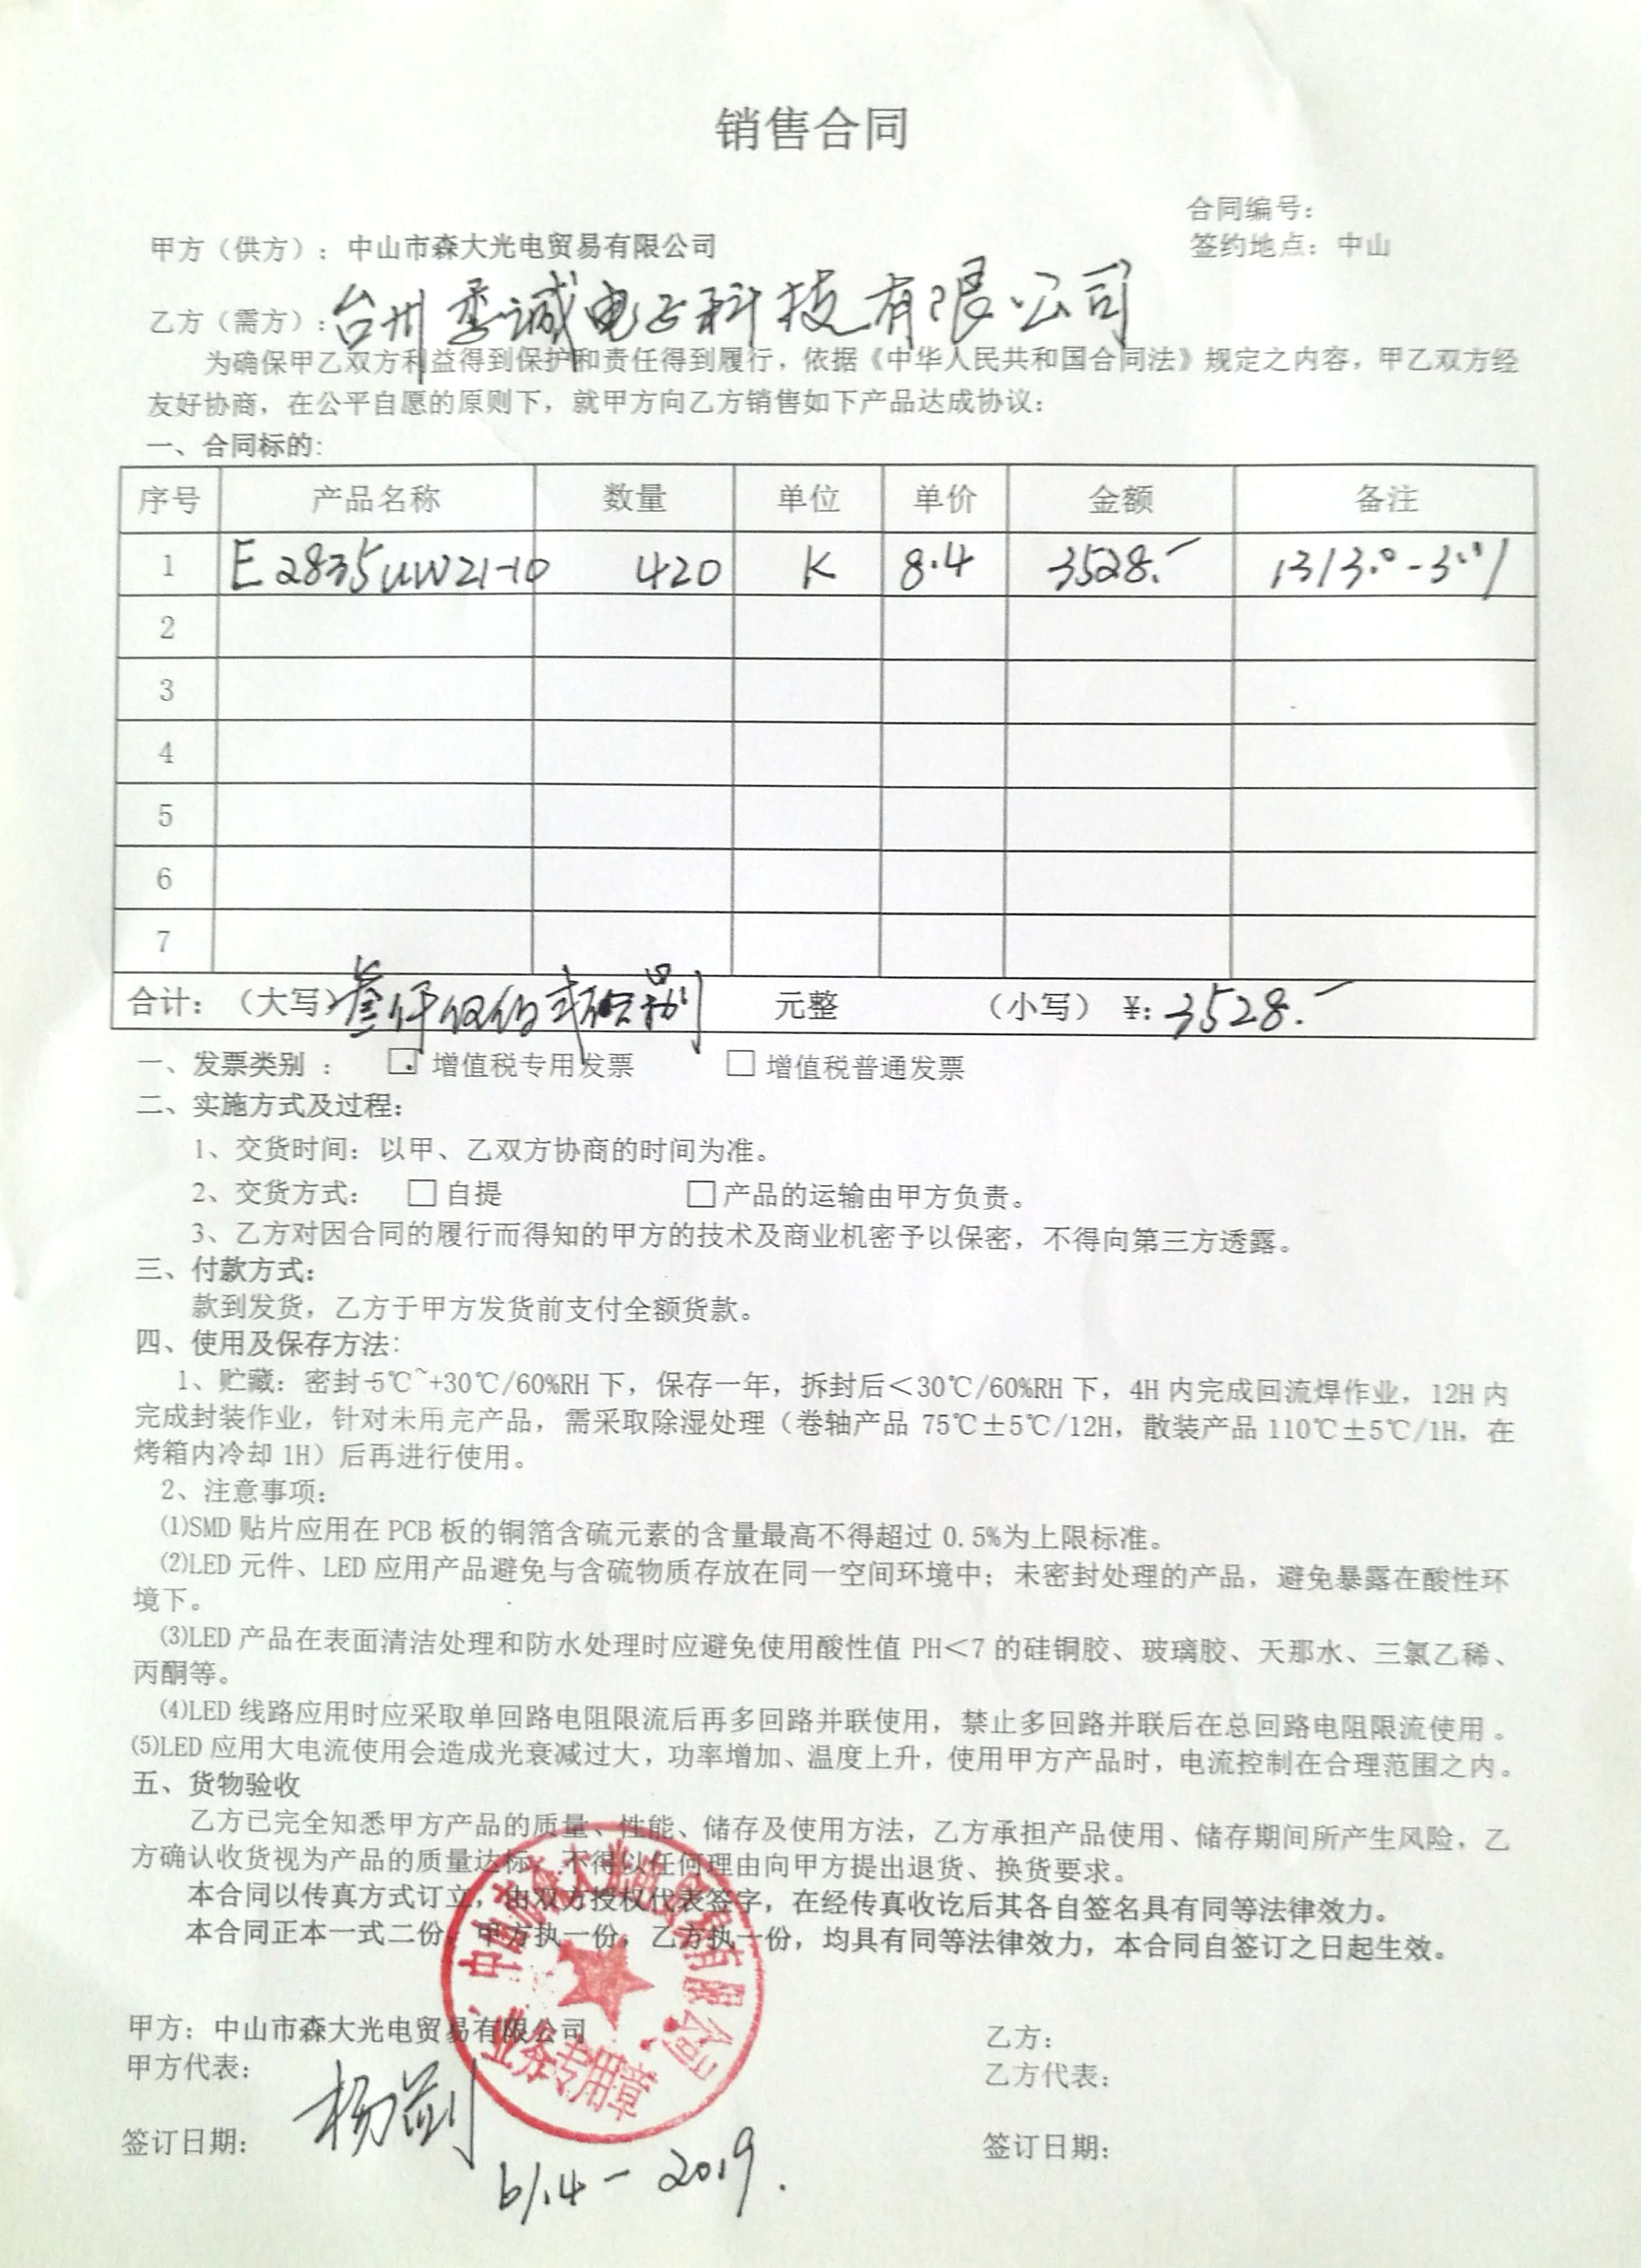 销售合同
合同编号：
甲方（供方）：中山市森大光电贸易有限公司 签约地点：中山
乙方（需方）：台州 诚电子科技有限公司
为确保甲乙双方利益得到保护和责任得到履行，依据《中华人民共和国合同法》规定之内容，甲乙双方经
友好协商，在公平自愿的原则下，就甲方向乙方销售如下产品达成协议：
一、合同标的：
序号 产品名称 数量 单位 单价 金额 备注
1 E2835UW21-10 420 K 8.4 3528.-
2
3
4
5
6
7
合计：（大写）叁仟伍佰贰拾捌 元整 （小写）¥：3528.-
一、发票类别 ： □ 增值税专用发票 □ 增值税普通发票
二、实施方式及过程：
1、交货时间：以甲、乙双方协商的时间为准。
2、交货方式： □自提 □产品的运输由甲方负责。
3、乙方对因合同的履行而得知的甲方的技术及商业机密予以保密，不得向第三方透露。
三、付款方式：
款到发货，乙方于甲方发货前支付全额货款。
四、使用及保存方法：
1、贮藏：密封-5℃~+30℃/60%RH 下，保存一年，拆封后＜30℃/60%RH 下，4H 内完成回流焊作业，12H 内
完成封装作业，针对未用完产品，需采取除湿处理（卷轴产品 75℃±5℃/12H，散装产品 110℃±5℃/1H，在
烤箱内冷却 1H）后再进行使用。
2、注意事项：
⑴SMD 贴片应用在 PCB 板的铜箔含硫元素的含量最高不得超过 0.5%为上限标准。
⑵LED 元件、LED 应用产品避免与含硫物质存放在同一空间环境中；未密封处理的产品，避免暴露在酸性环
境下。
⑶LED 产品在表面清洁处理和防水处理时应避免使用酸性值 PH＜7 的硅铜胶、玻璃胶、天那水、三氯乙稀、
丙酮等。
⑷LED 线路应用时应采取单回路电阻限流后再多回路并联使用，禁止多回路并联后在总回路电阻限流使用 。
⑸LED 应用大电流使用会造成光衰减过大，功率增加、温度上升，使用甲方产品时，电流控制在合理范围之内。
五、货物验收
乙方已完全知悉甲方产品的质量、性能、储存及使用方法，乙方承担产品使用、储存期间所产生风险，乙
方确认收货视为产品的质量达标，不得以任何理由向甲方提出退货、换货要求。
本合同以传真方式订立，由双方授权代表签字，在经传真收讫后其各自签名具有同等法律效力。
本合同正本一式二份，甲方执一份，乙方执一份，均具有同等法律效力，本合同自签订之日起生效。
中山市森大光电贸易有限公司
业务专用章
甲方：中山市森大光电贸易有限公司 乙方：
甲方代表： 乙方代表：
签订日期： 签订日期：
6/.4-2019.